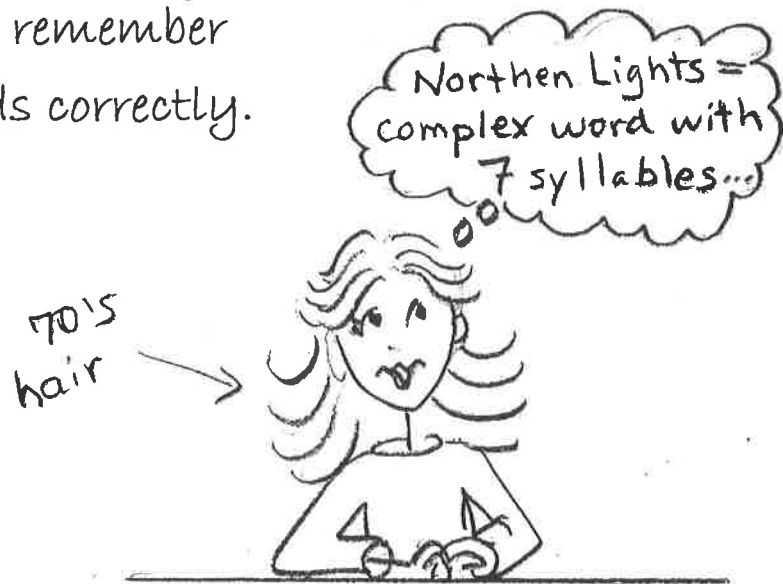 remember
ds correctly.
Northen Lights =
complex word with
7 syllables...
70's
hair